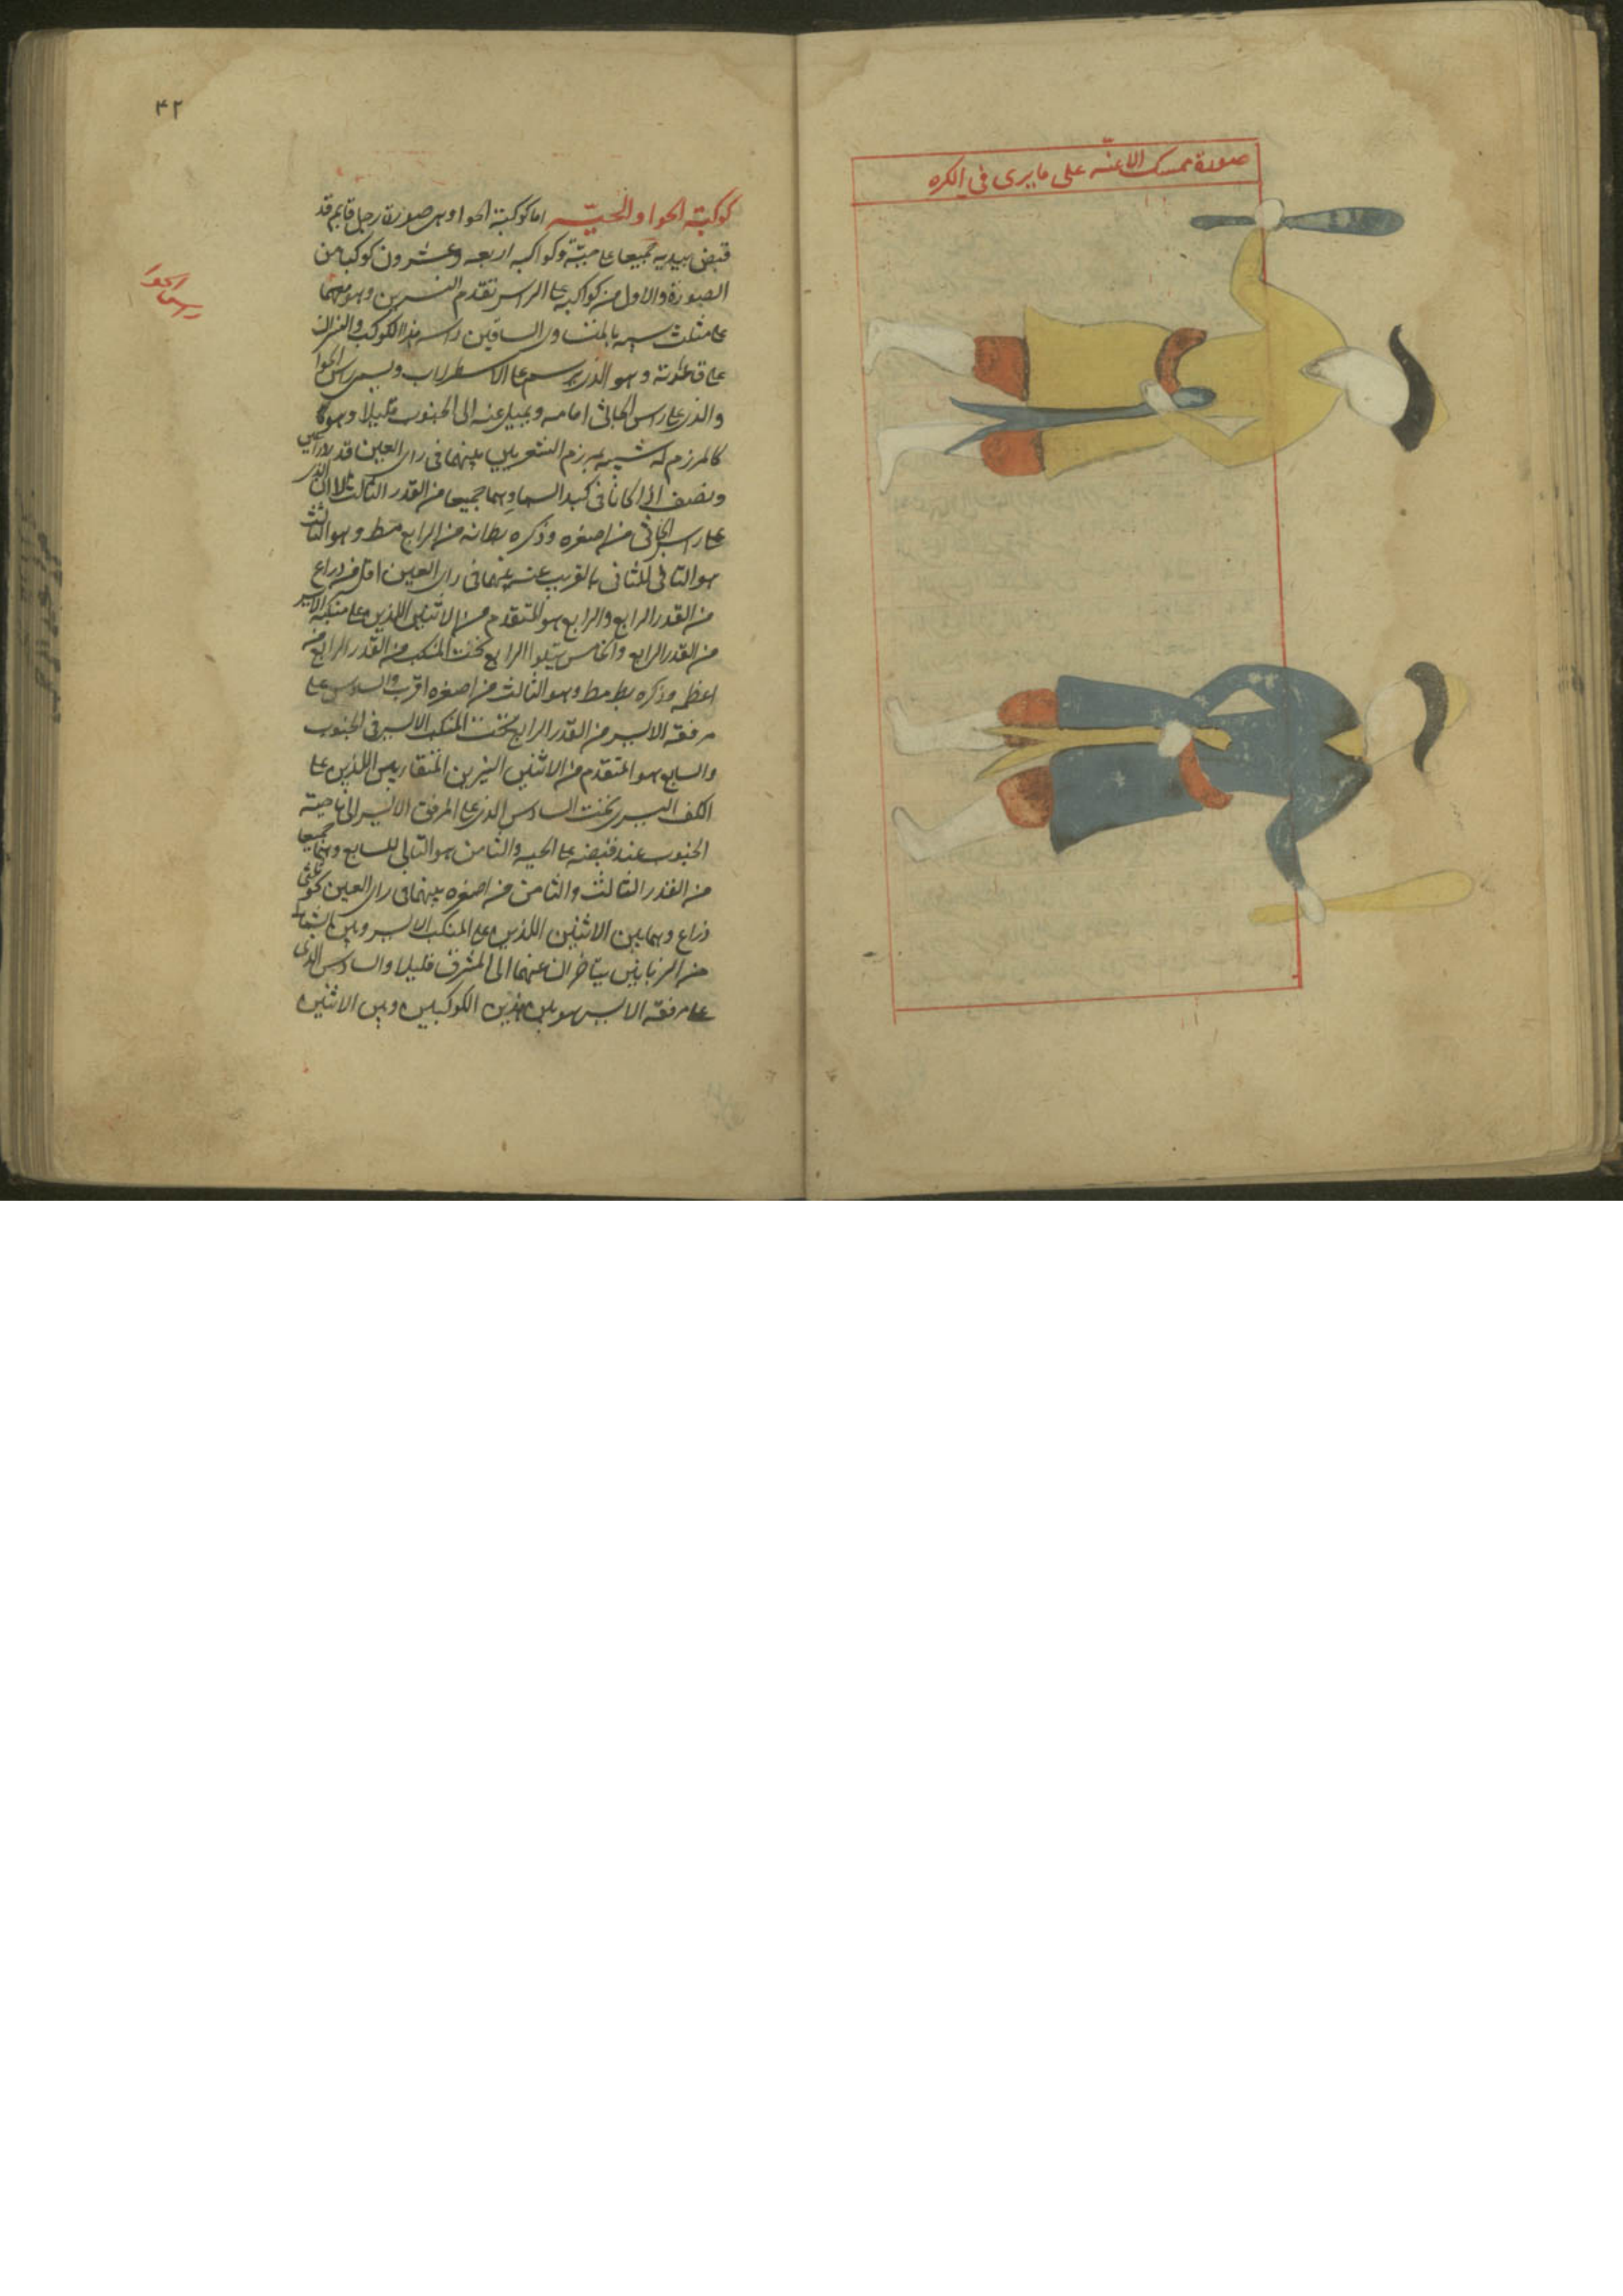 صورة ممسك الاعنّه على ما يرى في الكره
٤٢
كوكبة الحوا والحيّه اما كوكبة الحوا وهى صورة رجل قايم قد
قبض بيديه جميعا على حيّة وكواكبه اربعه وعشرون كوكبا من
الصورة والاول من كواكبه على الراس تقدم النسرين وهو معهما
على مثلث شبيه بالمتساوى الساقين راسه هذا الكوكب والنسران
على قاعدته وهو الذى يرسم على الاسطرلاب ويسمى راس الحوا
راس الحوا
والذى على راس الجاثى امامه ويميل عنه الى الجنوب قليلا وهو
كالمرزم له شبيه بمرزم الشعريين بينهما فى راى العين قد
ونصف اذا كانا فى كبد السما وهما جميعا من القدر الثالث الا ان الذى
على راس الجاثى من اصغره وذكره بطلميوس انه من الرابع و هو الثالث
هو التالى للثانى بالقرب عنه بينهما فى راى العين اقل من ذراع
من القدر الرابع والرابع هو المتقدم من الاثنين اللذين على منكبه الايسر
من القدر الرابع والخامس يتلوا الرابع تحت المنكب من القدر الرابع من
اعظمه وذكره وهو الثالث من اصغره اقرب والسادس على
مرفقه الايسر من القدر الرابع تحت المنكب الايسر فى الجنوب
والسابع هو المتقدم من الاثنين النيرين المتقاربين اللذين على
الكف اليسرى تحت السادس الذى على المرفق الايسر الى ناحية
الجنوب عند قبضه على الحيه والثامن هو التالى للسابع وهما جميعا
من القدر الثالث والثامن من اصغره بينهما فى راى العين نحو ثلثى
ذراع وهما بين الاثنين اللذين على المنكب الايسر وبين الشمالى
من الزبانين يتاخران عنهما الى المشرق قليلا والسادس الذى
على مرفقه الايسر هو بين هذين الكوكبين وبين الاثنين